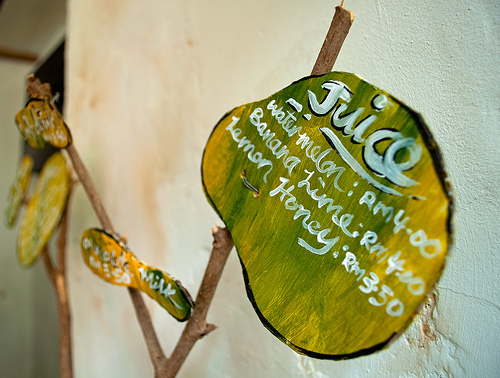 Juice
Watermelon: RM4.00
Banana Lime: RM4.00
Lemon Honey: RM3.50
Milk